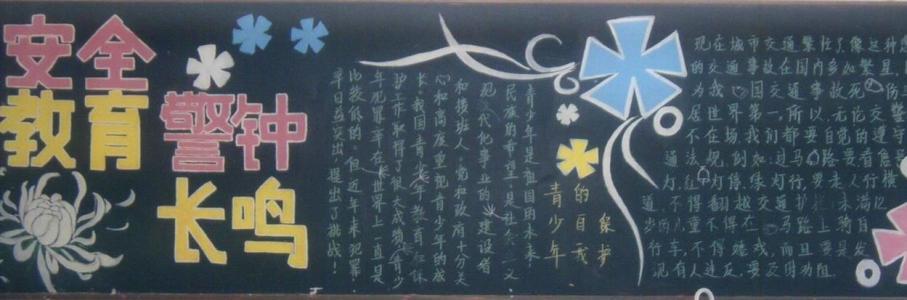 安全
教育
警钟
长鸣
青少年
的自我
保护
青少年是祖国的未来、
民族的希望，是社会主义
现代化事业的建设者
和接班人。党和政府十分关
心和高度重视青少年的成
长。我国青少年教育和保
护工作取得了很大成绩，青少
年犯罪率在世界上一直是
比较低的。但近年来犯罪
早日益突出，提出了挑战！
现在城市交通繁忙了，像这种
的交通事故在国内多如繁星，
为我国交通事故死
居世界第一，所以，无论交警
不在场，我们都要自觉的遵守
通法规，例如：过马路要看信号
灯，红灯停，绿灯行，要走人行横
道，不得翻越交通护栏，未满12
岁的儿童不得在马路上骑自
行车，不得嬉戏，而且要是发
现有人违反，要及时劝阻